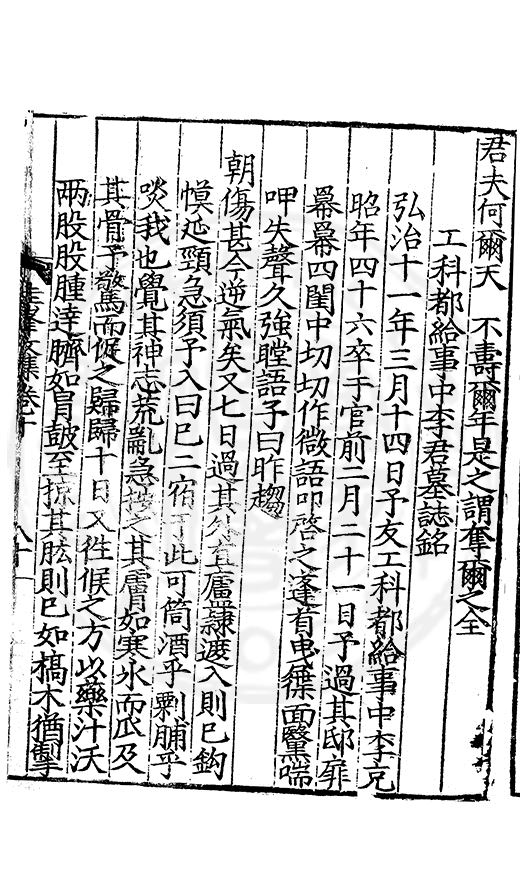 君夫何爾夭　不壽爾年是之謂奪爾之全
工科都給事中李君墓誌銘
弘治十一年三月十四日予友工科都給事中李克
昭年四十六卒于官前二月二十一日予過其邸扉
幕幕四闔中切切作微語叩啓之蓬首曳
面黳喘
呷失聲久強瞠語予曰昨趨
朝傷甚今逆氣矣又七日過其外直廬隸遽入則已鈎
幙延頸急須予入曰已二宿于此可筒酒乎剩脯乎
啖我也覺其神志荒亂急
之其膚如寒水而瓜及
其骨予驚而促之歸歸十日又徃候之方以藥汁沃
兩股股腫逹臍如冐鼓至
其肱則已如槁木猶掣
圭峯文集卷十